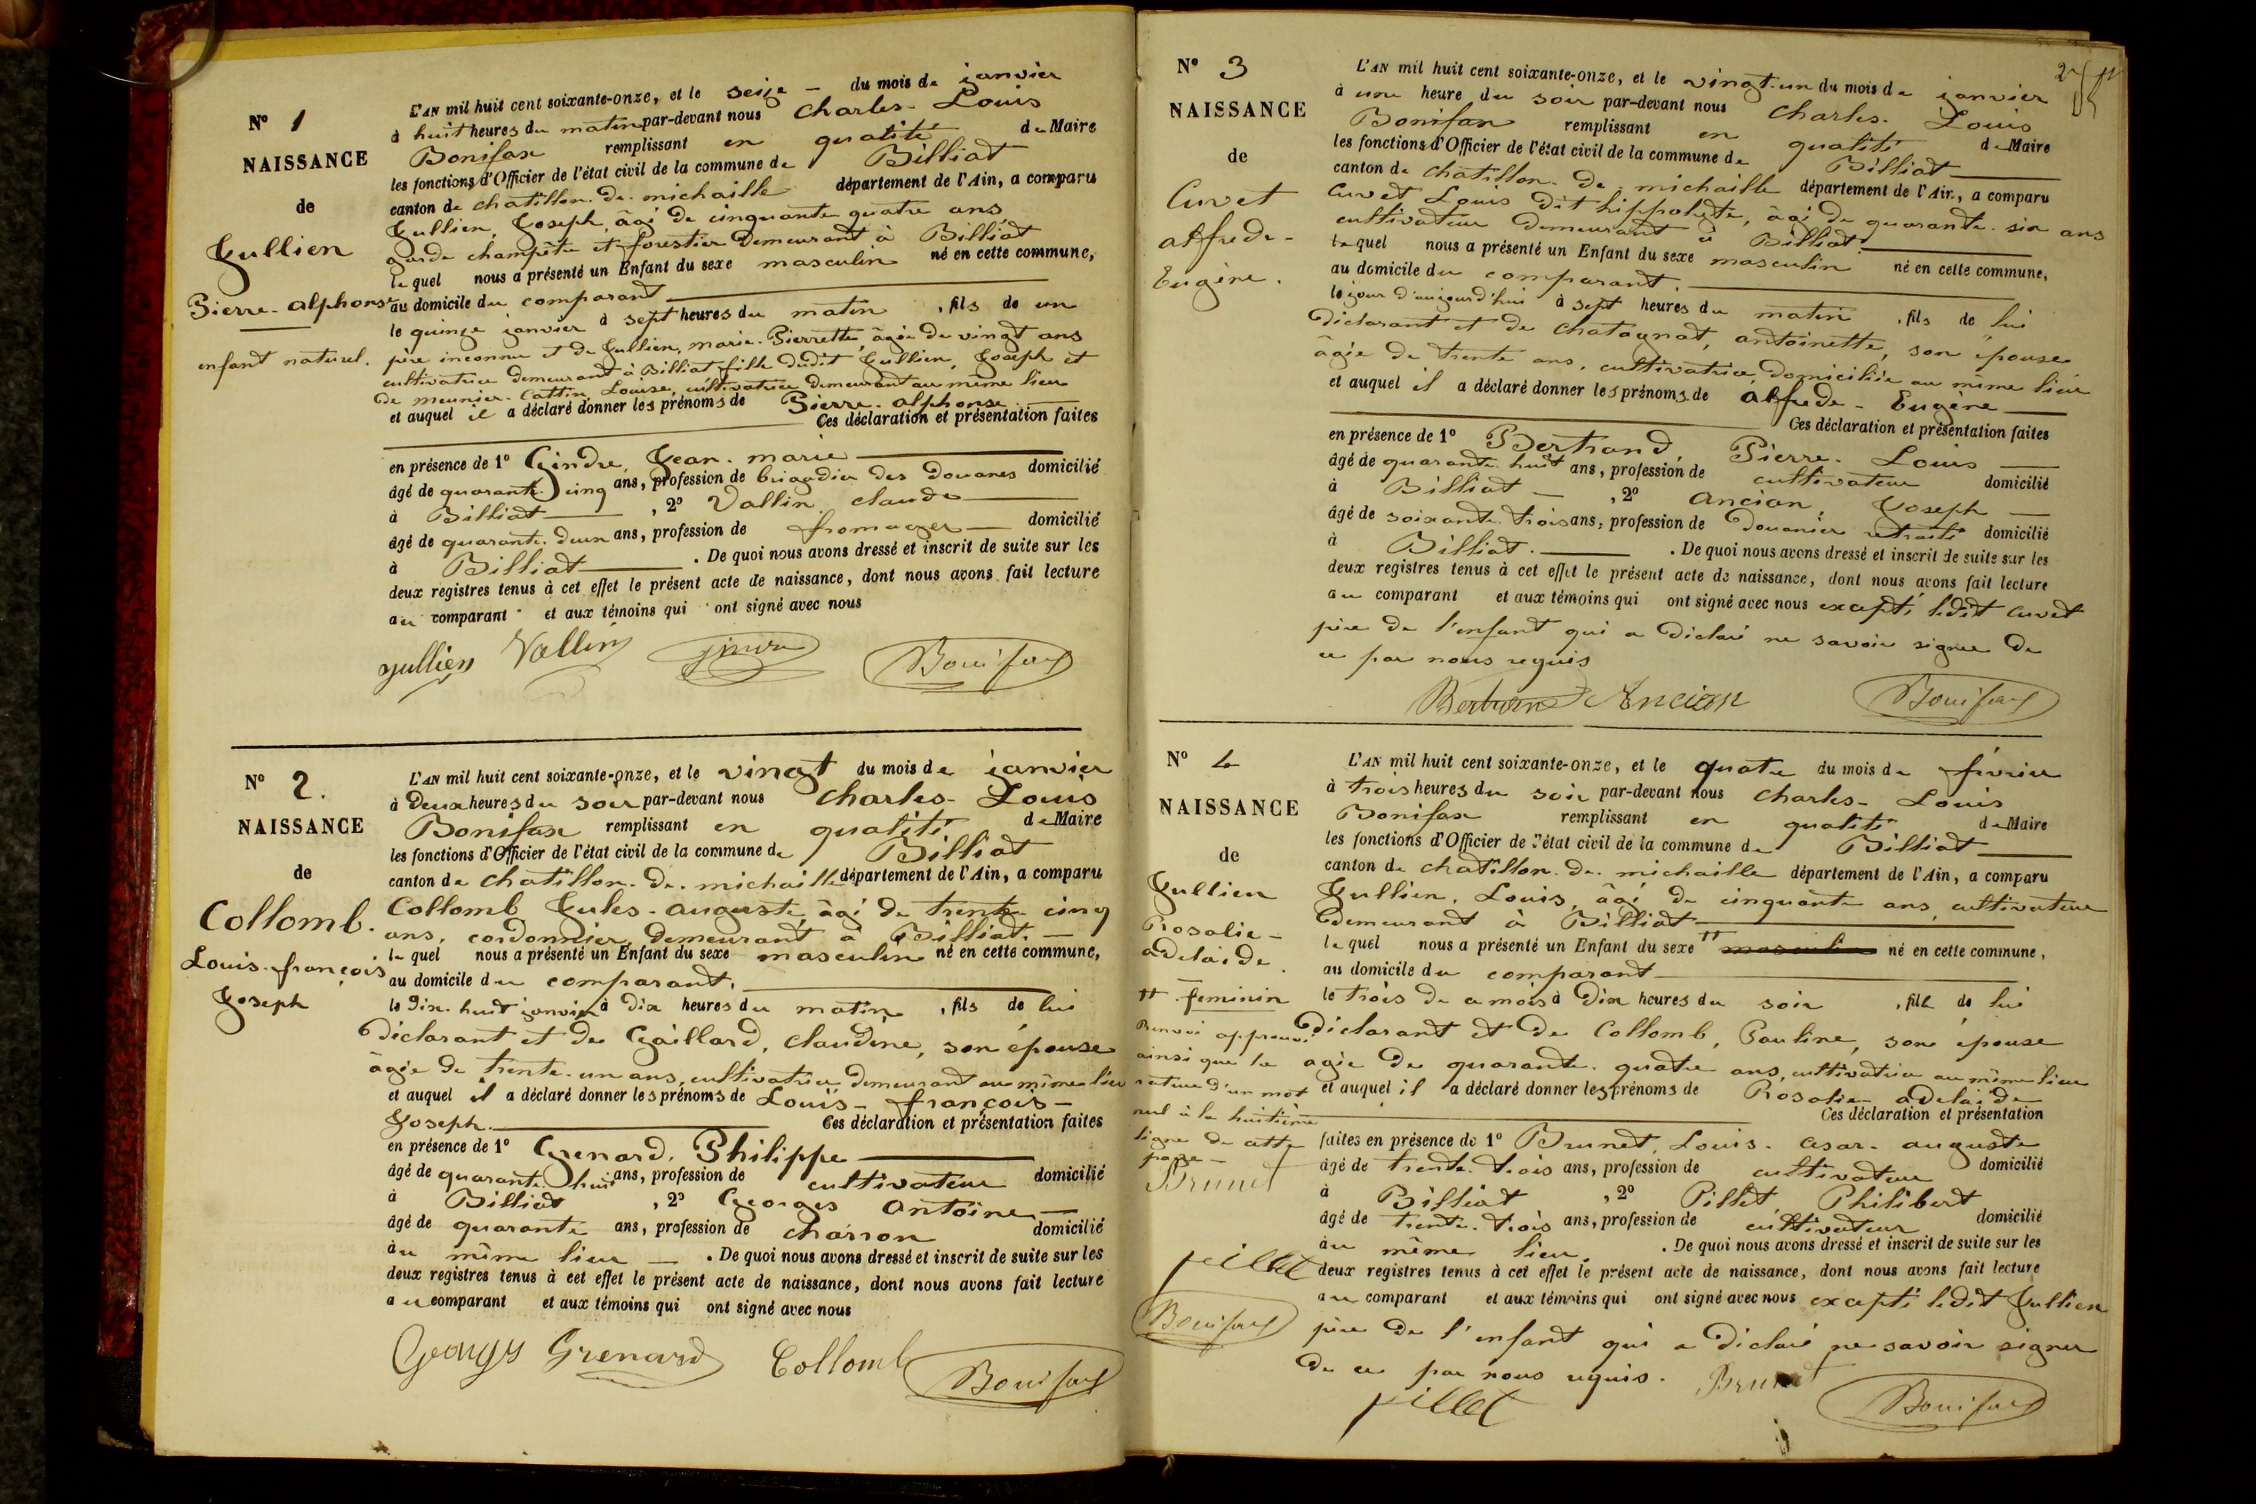 N° 1
NAISSANCE
de
Jullien
Pierre-alphonse
enfant naturel.
L'AN mil huit cent soixante-onze, et le seize - du mois de janvier
à huit heures du matin par-devant nous Charles-Louis
Bonifax remplissant en qualité de Maire
les fonctions d'Officier de l'état civil de la commune de Billiat
canton de chatillon-de-michaille département de l'Ain, a comparu
Jullien, Joseph, âgé de cinquante quatre ans
garde champêtre et forestier demeurant à Billiat
lequel nous a présenté un Enfant du sexe masculin né en cette commune,
au domicile du comparant
le quinze janvier à sept heures du matin, fils de un
père inconnu et de Jullien, marie-Pierrette, âgée de vingt ans
cultivatrice demeurant à Billiat fille dudit Jullien, Joseph et
de meunier-Cattin, Louise, cultivatrice demeurant au même lieu
et auquel il a déclaré donner les prénoms de Pierre-alphonse
Ces déclaration et présentation faites
en présence de 1° Gindre, Jean-marie
âgé de quarante cinq ans, profession de brigadier des Douanes domicilié
à Billiat, 2° Vallin, claude
âgé de quarante-deux ans, profession de fromager domicilié
à Billiat. De quoi nous avons dressé et inscrit de suite sur les
deux registres tenus à cet effet le présent acte de naissance, dont nous avons fait lecture
au comparant et aux témoins qui ont signé avec nous
Jullien Vallin Bonifax
N° 2.
NAISSANCE
de
Collomb.
Louis-françois
Joseph
L'AN mil huit cent soixante-onze, et le vingt du mois de janvier
à Deux heures du soir par-devant nous Charles-Louis
Bonifax remplissant en qualité de Maire
les fonctions d'Officier de l'état civil de la commune de Billiat
canton de chatillon-de-michaille département de l'Ain, a comparu
Collomb Jules-auguste, âgé de trente cinq
ans, cordonnier, demeurant à Billiat.
lequel nous a présenté un Enfant du sexe masculin né en cette commune,
au domicile du comparant.
le dix-huit janvier à dix heures du matin, fils de lui
Déclarant et de Gaillard, claudine, son épouse
âgée de trente-un ans, cultivatrice demeurant au même lieu
et auquel il a déclaré donner les prénoms de Louis-françois-
Joseph. Ces déclaration et présentation faites
en présence de 1° Grenard, Philippe
âgé de quarante-huit ans, profession de cultivateur domicilié
à Billiat, 2° Georges Antoine
âgé de quarante ans, profession de charron domicilié
au même lieu. De quoi nous avons dressé et inscrit de suite sur les
deux registres tenus à cet effet le présent acte de naissance, dont nous avons fait lecture
au comparant et aux témoins qui ont signé avec nous
Georges Grenard Collomb Bonifax
N° 3
NAISSANCE
de
Cuvet
alfrede-
Eugène.
L'AN mil huit cent soixante-onze, et le vingt-un du mois de janvier
à une heure du soir par-devant nous Charles-Louis
Bonifax remplissant en qualité de Maire
les fonctions d'Officier de l'état civil de la commune de Billiat
canton de chatillon-de-michaille département de l'Ain, a comparu
Cuvet Louis dit hippolyte, âgé de quarante-six ans
cultivateur demeurant à Billiat
lequel nous a présenté un Enfant du sexe masculin né en cette commune,
au domicile du comparant.
le jour d'aujourd'hui à sept heures du matin, fils de lui
Déclarant et de Chatagnat, antoinette, son épouse
âgée de trente ans, cultivatrice, domiciliée au même lieu
et auquel il a déclaré donner les prénoms de alfrede-Eugène
Ces déclaration et présentation faites
en présence de 1° Bertrand, Pierre-Louis
âgé de quarante-huit ans, profession de cultivateur domicilié
à Billiat, 2° Ancian, Joseph
âgé de soixante-trois ans, profession de Douanier retraité domicilié
à Billiat. De quoi nous avons dressé et inscrit de suite sur les
deux registres tenus à cet effet le présent acte de naissance, dont nous avons fait lecture
au comparant et aux témoins qui ont signé avec nous excepté ledit Cuvet
père de l'enfant qui a déclaré ne savoir signer de
ce par nous requis
Bertrand Ancian Bonifax
N° 4
NAISSANCE
de
Jullien
Rosalie-
adelaïde.
feminin
Renvoi approuvé
ainsi que la
rature d'un mot
nul à la huitième
ligne de cette
page-
Brunet
pillet
Bonifax
L'AN mil huit cent soixante-onze, et le quatre du mois de février
à trois heures du soir par-devant nous Charles-Louis
Bonifax remplissant en qualité de Maire
les fonctions d'Officier de l'état civil de la commune de Billiat
canton de chatillon-de-michaille département de l'Ain, a comparu
Jullien, Louis, âgé de cinquante ans, cultivateur
demeurant à Billiat
lequel nous a présenté un Enfant du sexe masculin né en cette commune,
au domicile du comparant
le trois de ce mois à dix heures du soir, fille de lui
Déclarant et de Collomb, Pauline, son épouse
agée de quarante-quatre ans, cultivatrice au même lieu
et auquel il a déclaré donner les prénoms de Rosalie-adelaïde
Ces déclaration et présentation
faites en présence de 1° Brunet, Louis-cesar-auguste
âgé de trente-trois ans, profession de cultivateur domicilié
à Billiat, 2° Pillet, Philibert
âgé de trente-trois ans, profession de cultivateur domicilié
au même lieu. De quoi nous avons dressé et inscrit de suite sur les
deux registres tenus à cet effet le présent acte de naissance, dont nous avons fait lecture
au comparant et aux témoins qui ont signé avec nous excepté ledit Jullien
père de l'enfant qui a déclaré ne savoir signer
de ce par nous requis. Brunet
pillet Bonifax